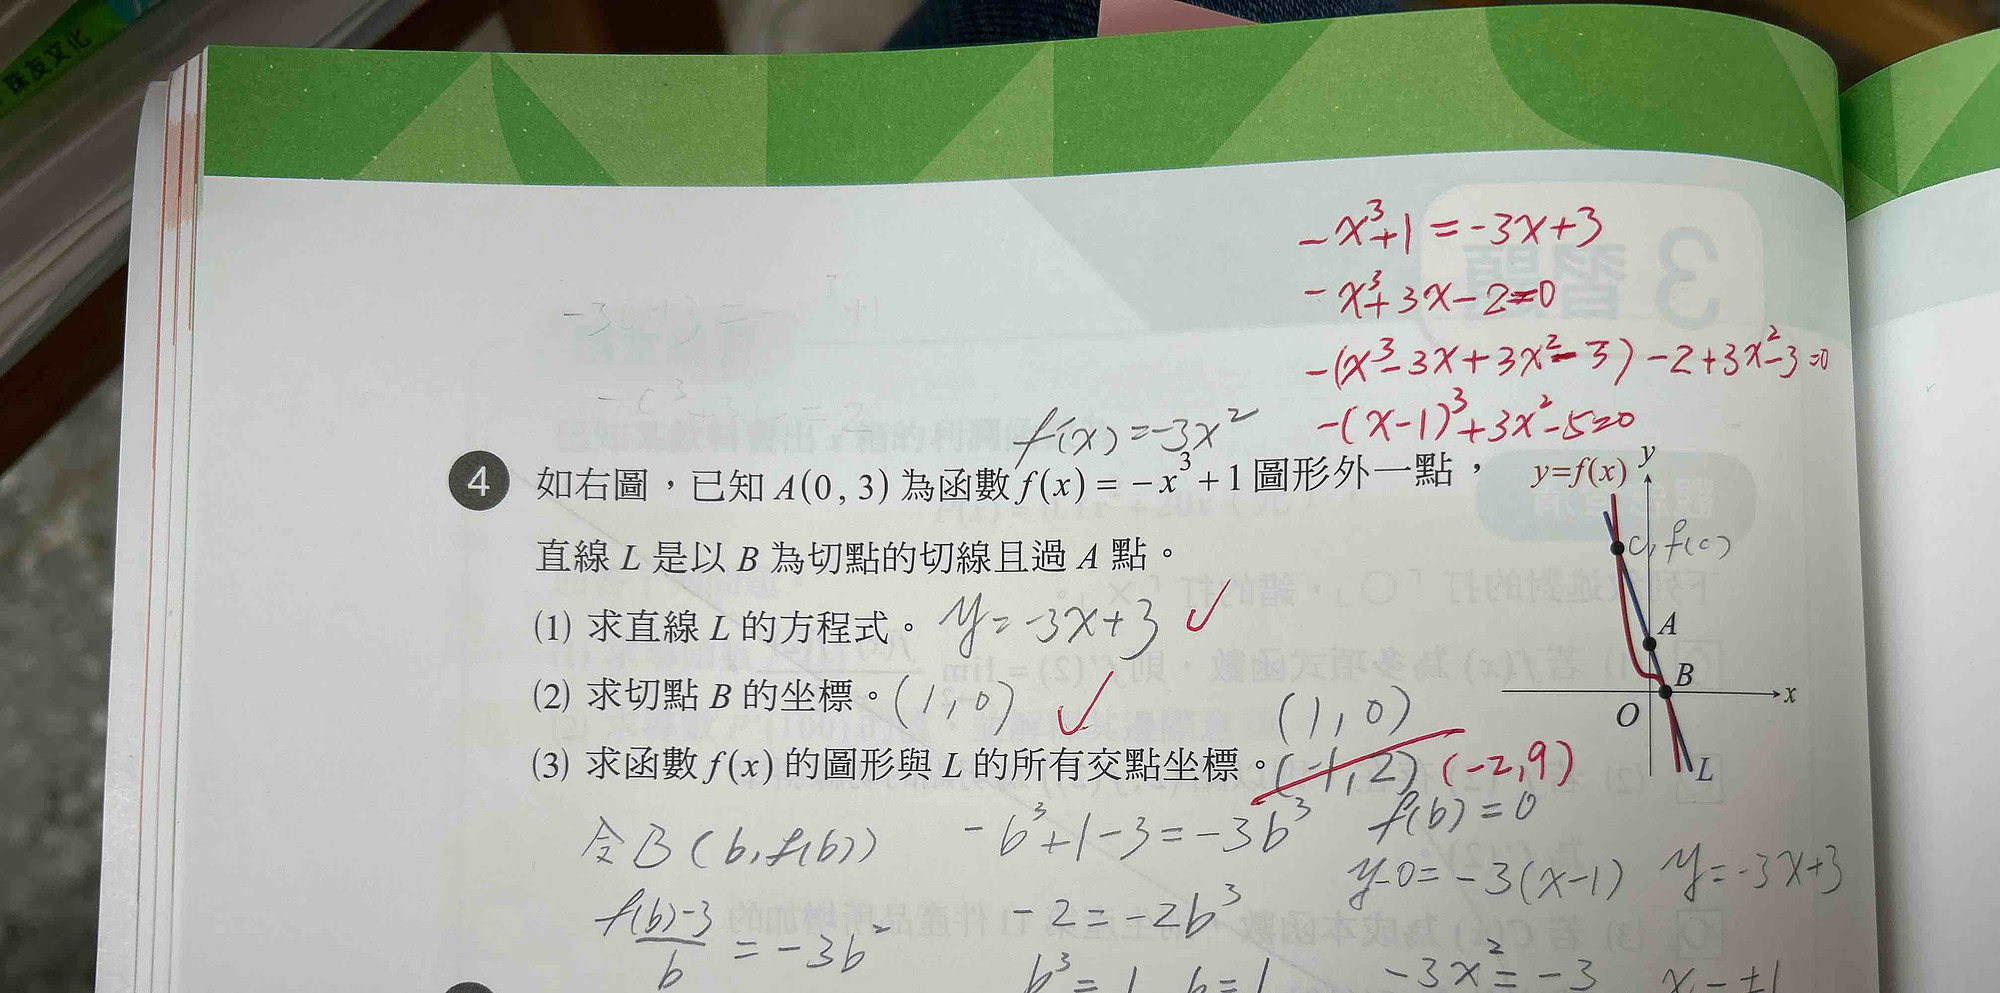 -x³+1=-3x+3
-x³+3x-2=0
-(x³-3x+3x²-3)-2+3x²-3=0
-(x-1)³+3x²-5=0
f'(x)=-3x²
4 如右圖，已知 A(0, 3) 為函數 f(x) = -x³+1 圖形外一點，
直線 L 是以 B 為切點的切線且過 A 點。
(1) 求直線 L 的方程式。 y=-3x+3 ✓
(2) 求切點 B 的坐標。 (1,0) ✓
(1,0)
(3) 求函數 f(x) 的圖形與 L 的所有交點坐標。 (-1,2) (-2,9)
y=f(x) y
C, f(c)
A
B
x
O
L
令B(b,f(b)) -b³+1-3=-3b³ f(b)=0
y-0=-3(x-1) y=-3x+3
f(b)-3/b = -3b² -2=-2b³
b³=1 b=1 -3x²=-3 x=±1